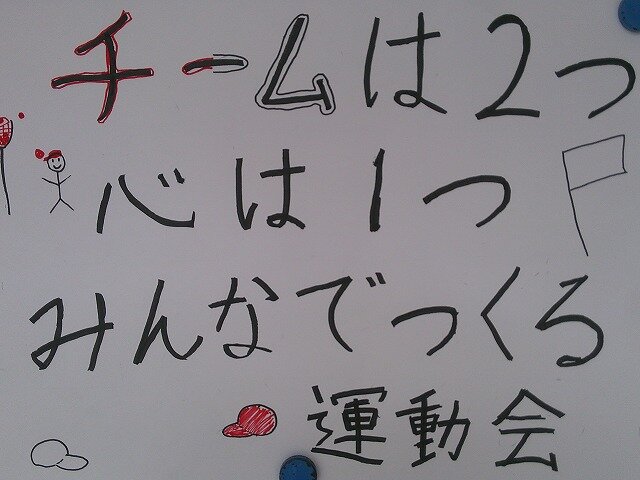 チームは2つ
心は1つ
みんなでつくる
運動会